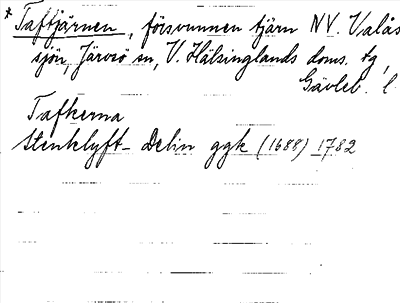 * Taftjärnen, försvunnen tjärn NV. Valås
sjön, Järvsö sn, V. Hälsinglands doms. tg,
Gävleb. l.
Tafkerna
Stenklyft- Delin ggk (1688) 1782